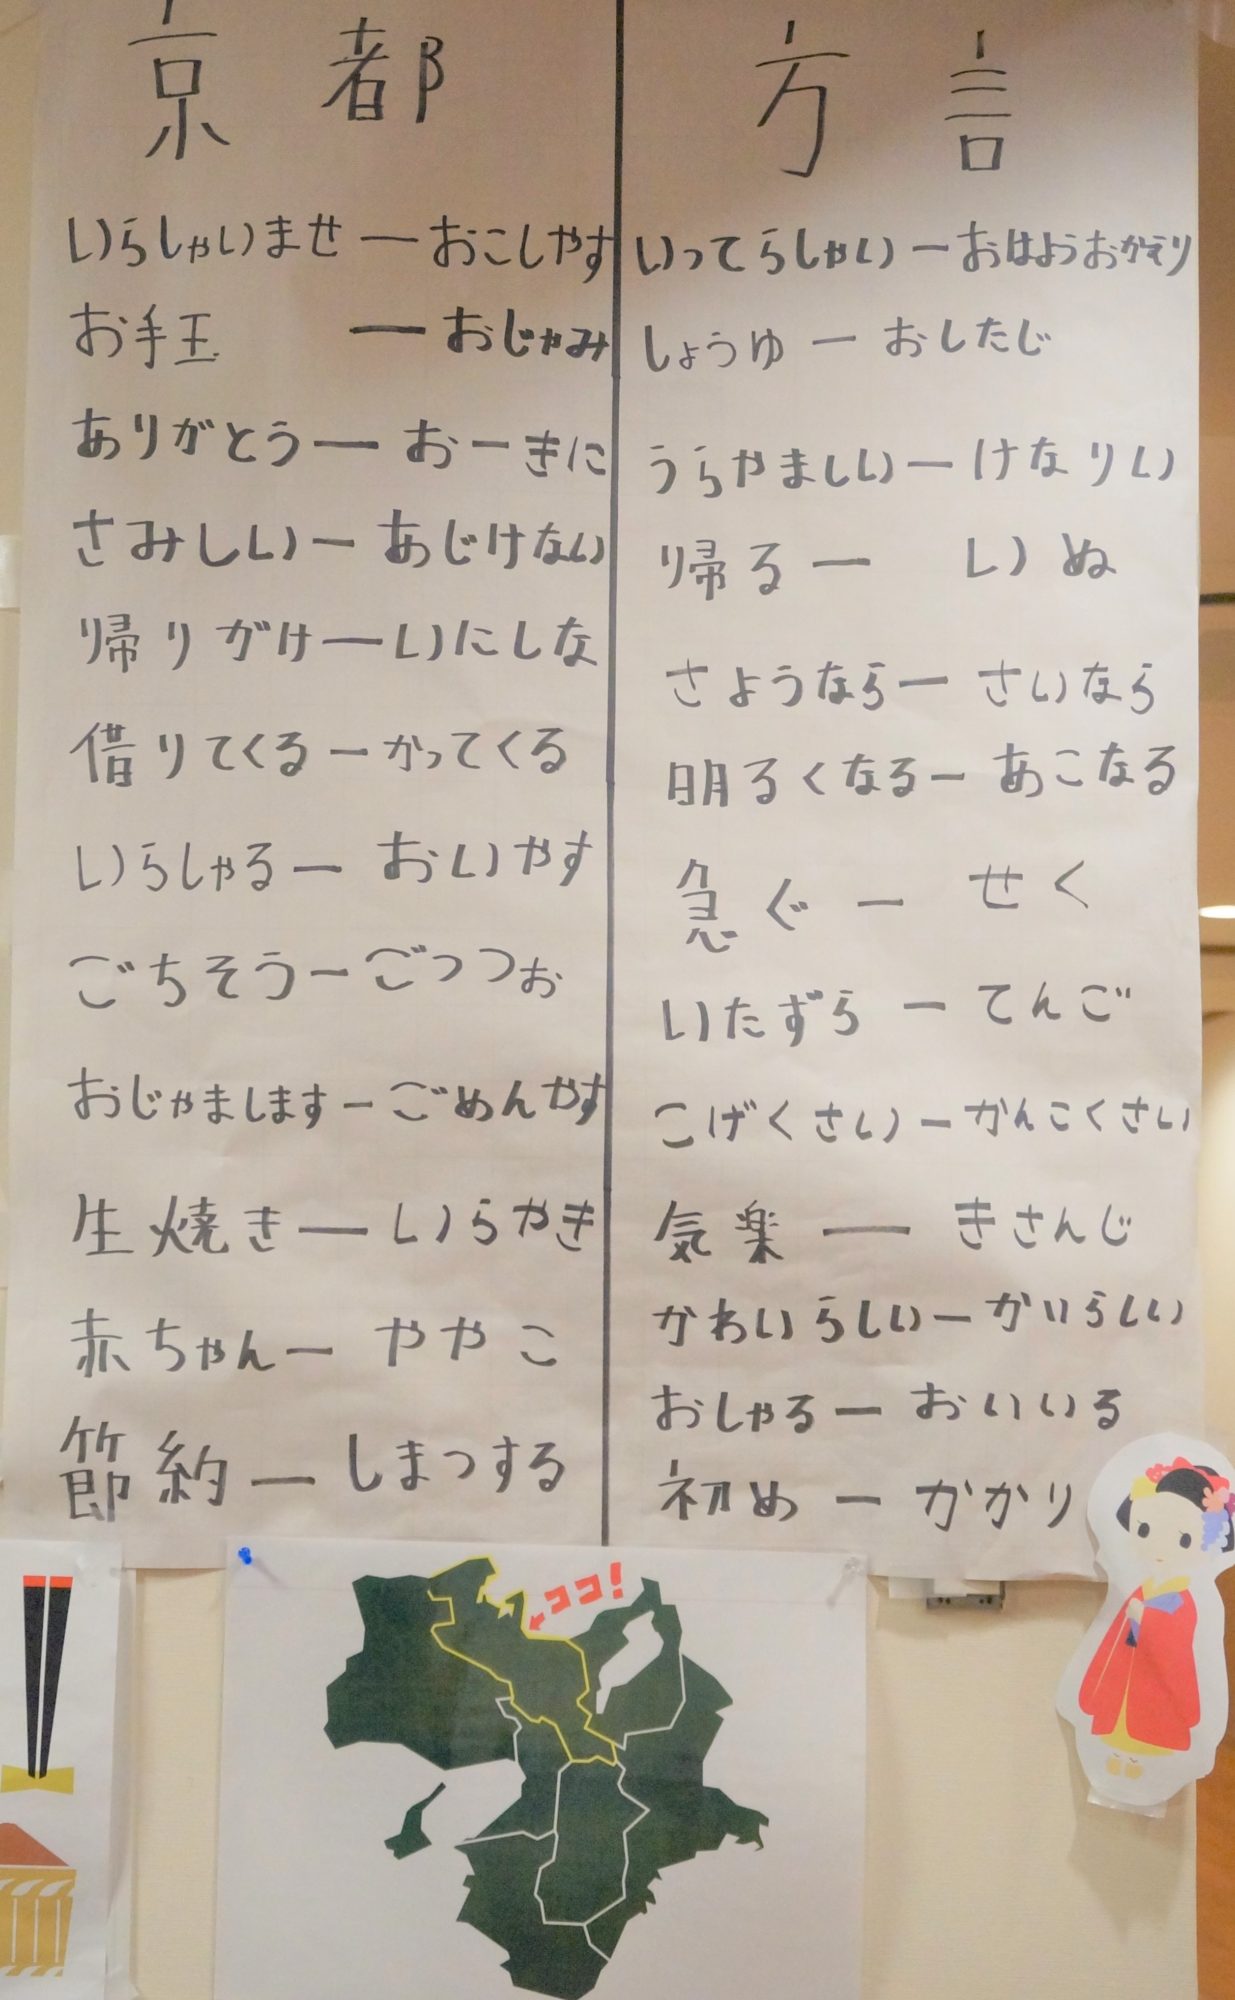 京都 方言
いらしゃいませ ー おこしやす
お手玉 ー おじゃみ
ありがとう ー おーきに
さみしい ー あじけない
帰りがけ ー いにしな
借りてくる ー かってくる
いらしゃる ー おいやす
ごちそう ー ごっつぉ
おじゃまします ー ごめんやす
生焼き ー いらやき
赤ちゃん ー ややこ
節約 ー しまつする
いってらしゃい ー おはようおかえり
しょうゆ ー おしたじ
うらやましい ー けなりい
帰る ー いぬ
さようなら ー さいなら
明るくなる ー あこなる
急ぐ ー せく
いたずら ー てんご
こげくさい ー かんこくさい
気楽 ー きさんじ
かわいらしい ー かいらしい
おしゃる ー おいいる
初め ー かかり
ココ!